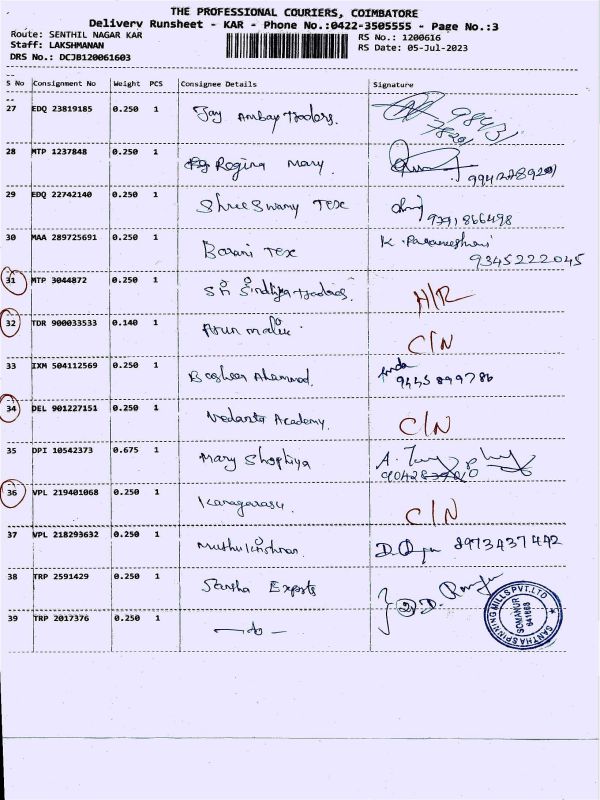 THE PROFESSIONAL COURIERS, COIMBATORE
Delivery Runsheet - KAR - Phone No.:0422-3505555 - Page No.:3
Route: SENTHIL NAGAR KAR RS No.: 1200616
Staff: LAKSHMANAN RS Date: 05-Jul-2023
DRS No.: DCJB120061603
S No Consignment No Weight PCS Consignee Details Signature
27 EDQ 23819185 0.250 1 Jay Ambay traders.
28 MTP 1237848 0.250 1 Regina Mary
29 EDQ 22742140 0.250 1 Shree Swamy Tex 9791866498
30 MAA 289725691 0.250 1 Barani Tex K. Parameshwari 9345222045
31 MTP 3044872 0.250 1 Sri Sindhiya traders. H/R
32 TDR 900033533 0.140 1 Arun C/N
33 IXM 504112569 0.250 1 9445899786
34 DEL 901227151 0.250 1 Vedanta Academy. C/N
35 DPI 10542373 0.675 1 Mary Shophiya
36 VPL 219401068 0.250 1 Kanagarasu. C/N
37 VPL 218293632 0.250 1 Muthukrishnan 8973437442
38 TRP 2591429 0.250 1 Santha Exports
39 TRP 2017376 0.250 1 —do—
SANTHA SPINNING MILLS PVT.LTD
SOMANUR
641668